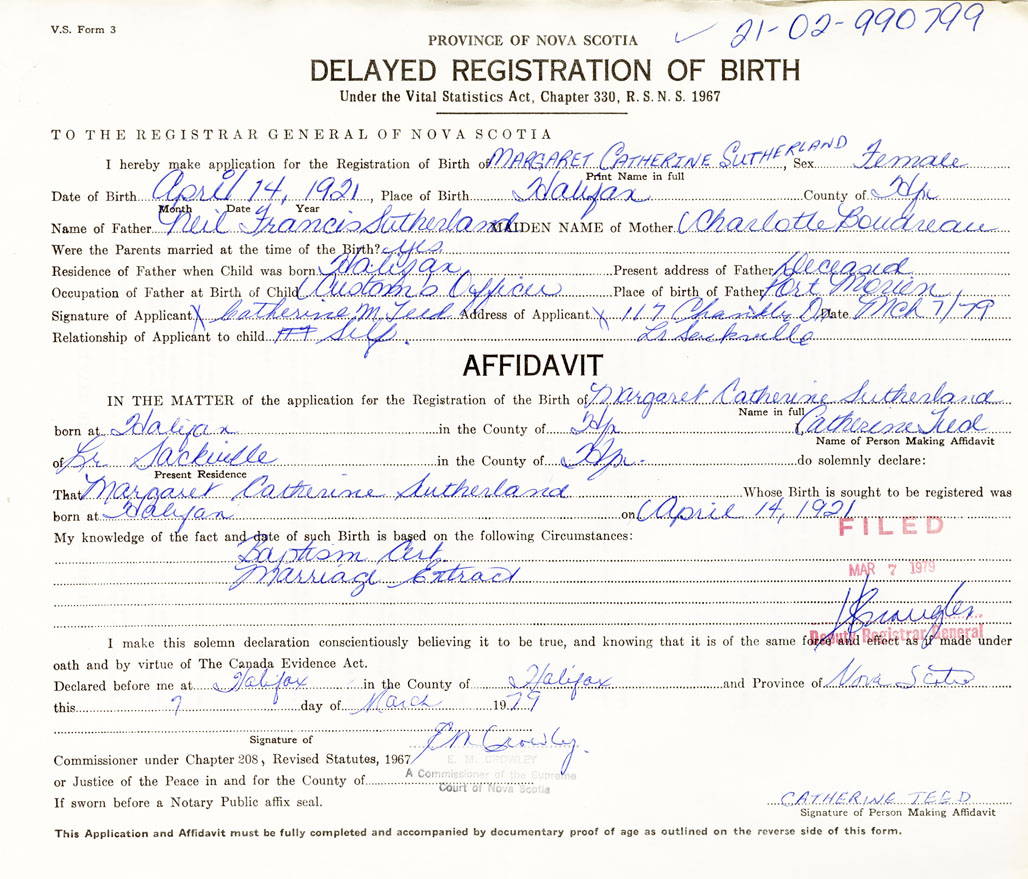 V.S. Form 3
21-02-990799
PROVINCE OF NOVA SCOTIA
DELAYED REGISTRATION OF BIRTH
Under the Vital Statistics Act, Chapter 330, R. S. N. S. 1967
TO THE REGISTRAR GENERAL OF NOVA SCOTIA
I hereby make application for the Registration of Birth of MARGARET CATHERINE SUTHERLAND, Sex Female
Print Name in full
Date of Birth April 14, 1921, Place of Birth Halifax County of Hfx
Month Date Year
Name of Father Neil Francis Sutherland MAIDEN NAME of Mother Charlotte Boudreau
Were the Parents married at the time of the Birth? yes
Residence of Father when Child was born Halifax Present address of Father Deceased
Occupation of Father at Birth of Child Customs Officer Place of birth of Father Port Morien
Signature of Applicant X Catherine M. Teed Address of Applicant X 117 Dr. Date Mch 7/79
Relationship of Applicant to child Self. Lr Sackville
AFFIDAVIT
IN THE MATTER of the application for the Registration of the Birth of Margaret Catherine Sutherland
Name in full
born at Halifax in the County of Hfx Catherine Teed
Name of Person Making Affidavit
of Lr Sackville in the County of Hfx. do solemnly declare:
Present Residence
That Margaret Catherine Sutherland Whose Birth is sought to be registered was
born at Halifax on April 14, 1921
FILED
My knowledge of the fact and date of such Birth is based on the following Circumstances:
Baptism Cert.
MAR 7 1979
Marriage Extract
Deputy Registrar General
I make this solemn declaration conscientiously believing it to be true, and knowing that it is of the same force and effect as if made under
oath and by virtue of The Canada Evidence Act.
Declared before me at Halifax in the County of Halifax and Province of Nova Scotia
this 7 day of March 1979
Signature of E M Crowley.
Commissioner under Chapter 208, Revised Statutes, 1967
E. M. CROWLEY
or Justice of the Peace in and for the County of
A Commissioner of the Supreme
Court of Nova Scotia
If sworn before a Notary Public affix seal.
CATHERINE TEED
Signature of Person Making Affidavit
This Application and Affidavit must be fully completed and accompanied by documentary proof of age as outlined on the reverse side of this form.